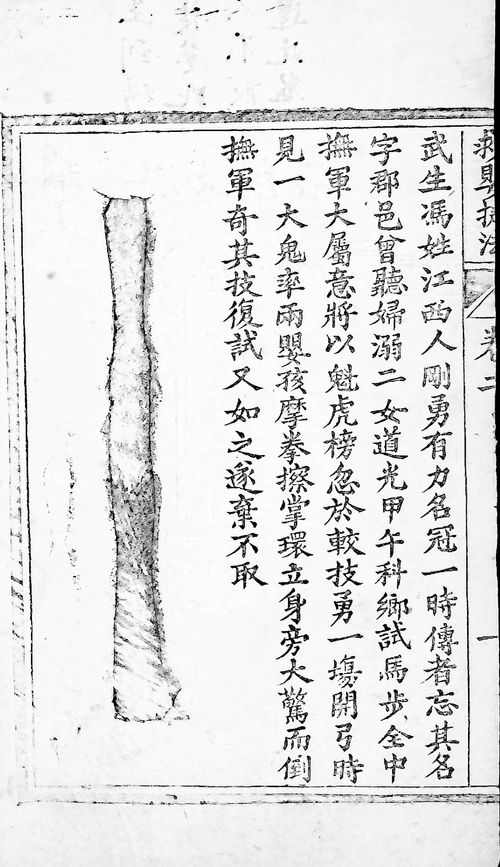 救畀捷法 卷二 一
武生馮姓江西人剛勇有力名冠一時傳者忘其名
字郡邑曾聽婦溺二女道光甲午科鄉試馬步全中
撫軍大屬意將以魁虎榜忽於較技勇一塲開弓時
見一大鬼率兩嬰孩摩拳擦掌環立身旁大驚而倒
撫軍奇其技復試又如之遂棄不取